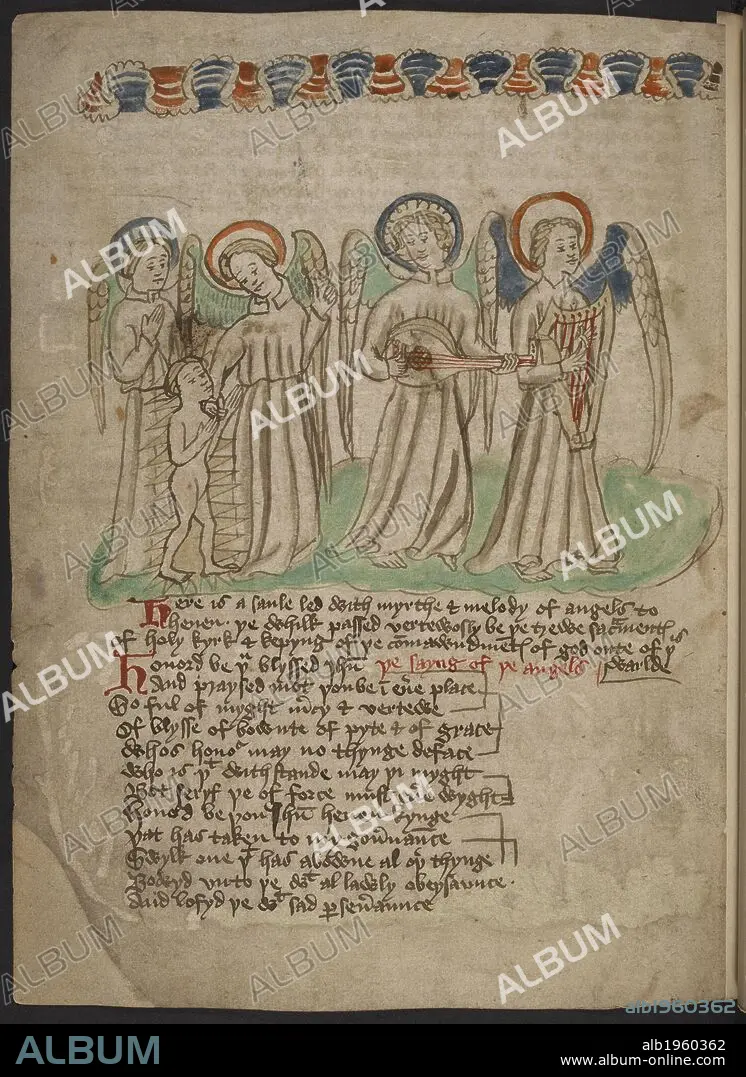 Here is a saule led with myrthe & melody of angels to
heuen. ye whilk passed vertewosly be ye trewe sacment
of holy kyrk & kepyng of ye comawndmet of god owte of yis
warlde
Honord be yu blyssed ihu ye sayng of ye angels
And praysed mot you be i eue place
So ful of myght mcy & vertewe
Of blysse of bownte of pyte & of grace
Whos honor may no thynge deface
Who is yt withstande may yi myght
Bot seryf ye of force must wyght
Honord be you Ihu heuen kynge
yat has taken to
Swylk one yt has abowne al oyr thynge
Bowyd vnto ye wt al lawly obeysaunce.
And lofyd ye wt sad pseueraunce
ALBUM
alb1960362
ALBUM
alb1960362
www.album-online.com